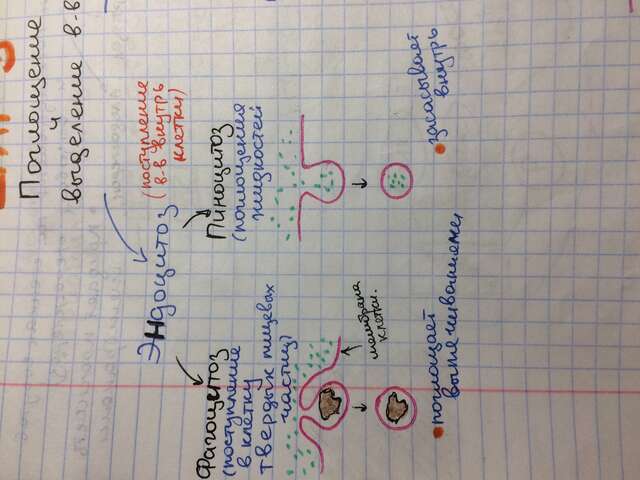 Поглощение
и
выделение в-в
Эндоцитоз
(поступление
в-в внутрь
клетки)
Фагоцитоз
(поступление
в клетку
твердых пищевых
частиц)
Пиноцитоз
(поглощения
жидкостей)
мембрана
клетки.
поглощает
выпячиваниями
засасывает
внутрь